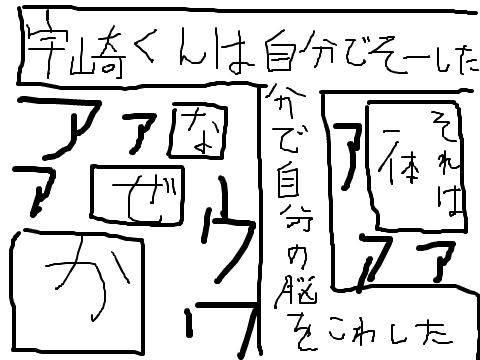 宇崎くんは自分でそーした
ア
ア
な
ア
ぜ
ウ
か
ワ
分で自分の脳をこわした
それは
一体
ア
ア
ア